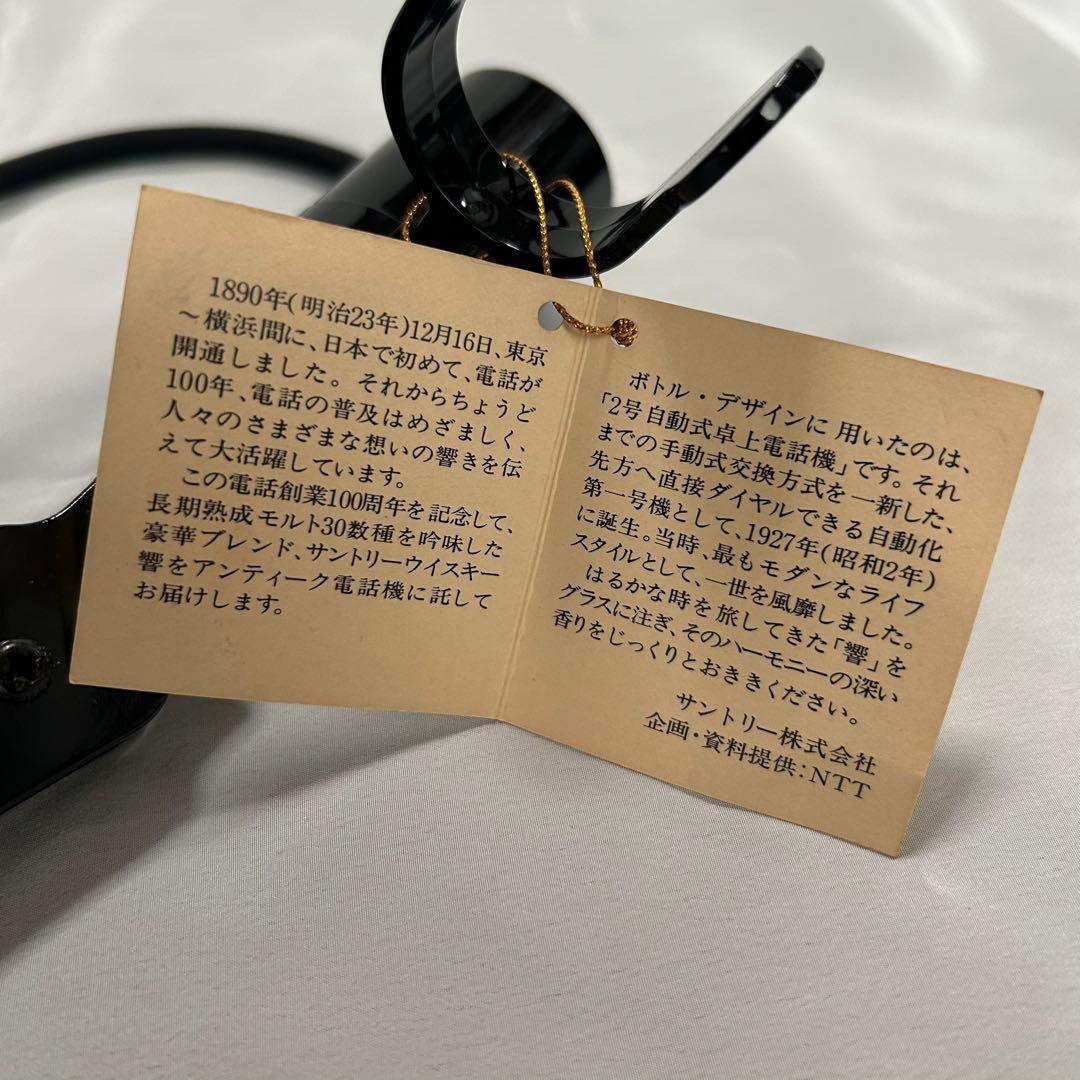 1890年(明治23年)12月16日、東京
〜横浜間に、日本で初めて、電話が
開通しました。それからちょうど
100年、電話の普及はめざましく、
人々のさまざまな想いの響きを伝
えて大活躍しています。
この電話創業100周年を記念して、
長期熟成モルト30数種を吟味した
豪華ブレンド、サントリーウイスキー
響をアンティーク電話機に託して
お届けします。
ボトル・デザインに用いたのは、
「2号自動式卓上電話機」です。それ
までの手動式交換方式を一新した、
先方へ直接ダイヤルできる自動化
第一号機として、1927年(昭和2年)
に誕生。当時、最もモダンなライフ
スタイルとして、一世を風靡しました。
はるかな時を旅してきた「響」を
グラスに注ぎ、そのハーモニーの深い
香りをじっくりとおききください。
サントリー株式会社
企画・資料提供:NTT